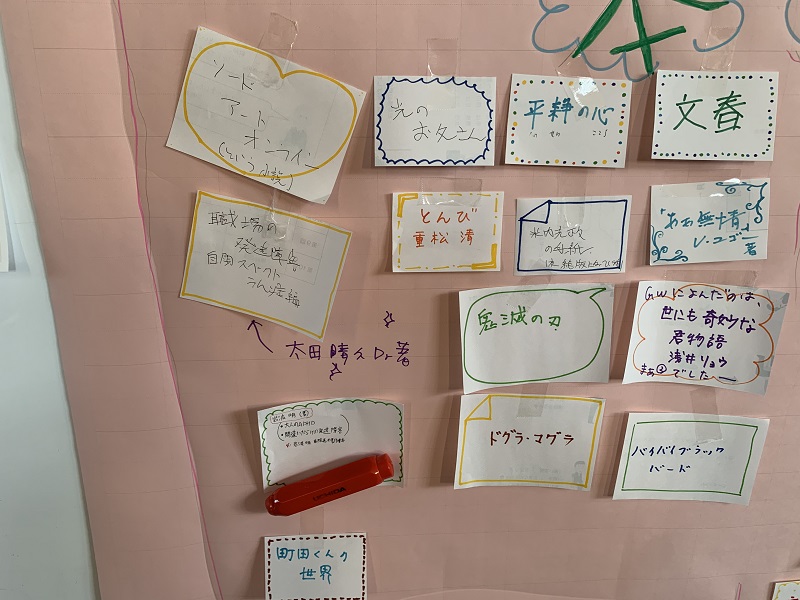 本
ソード
アート
オンライン
(という小説)
光の
お父さん
平静の心
こころ
文春
職場の
発達障害
自閉スペクトラム症編
太田晴久Dr著
とんび
重松清
米内光政
の手紙
「ああ無情」
V.ユゴー
著
鬼滅の刃
GWによんだのは、
世にも奇妙な
君物語
浅井リョウ
まあ②でしたー
岩波明(著)
大人のADHD
ドグラ・マグラ
バイバイブラック
バード
町田くんの
世界